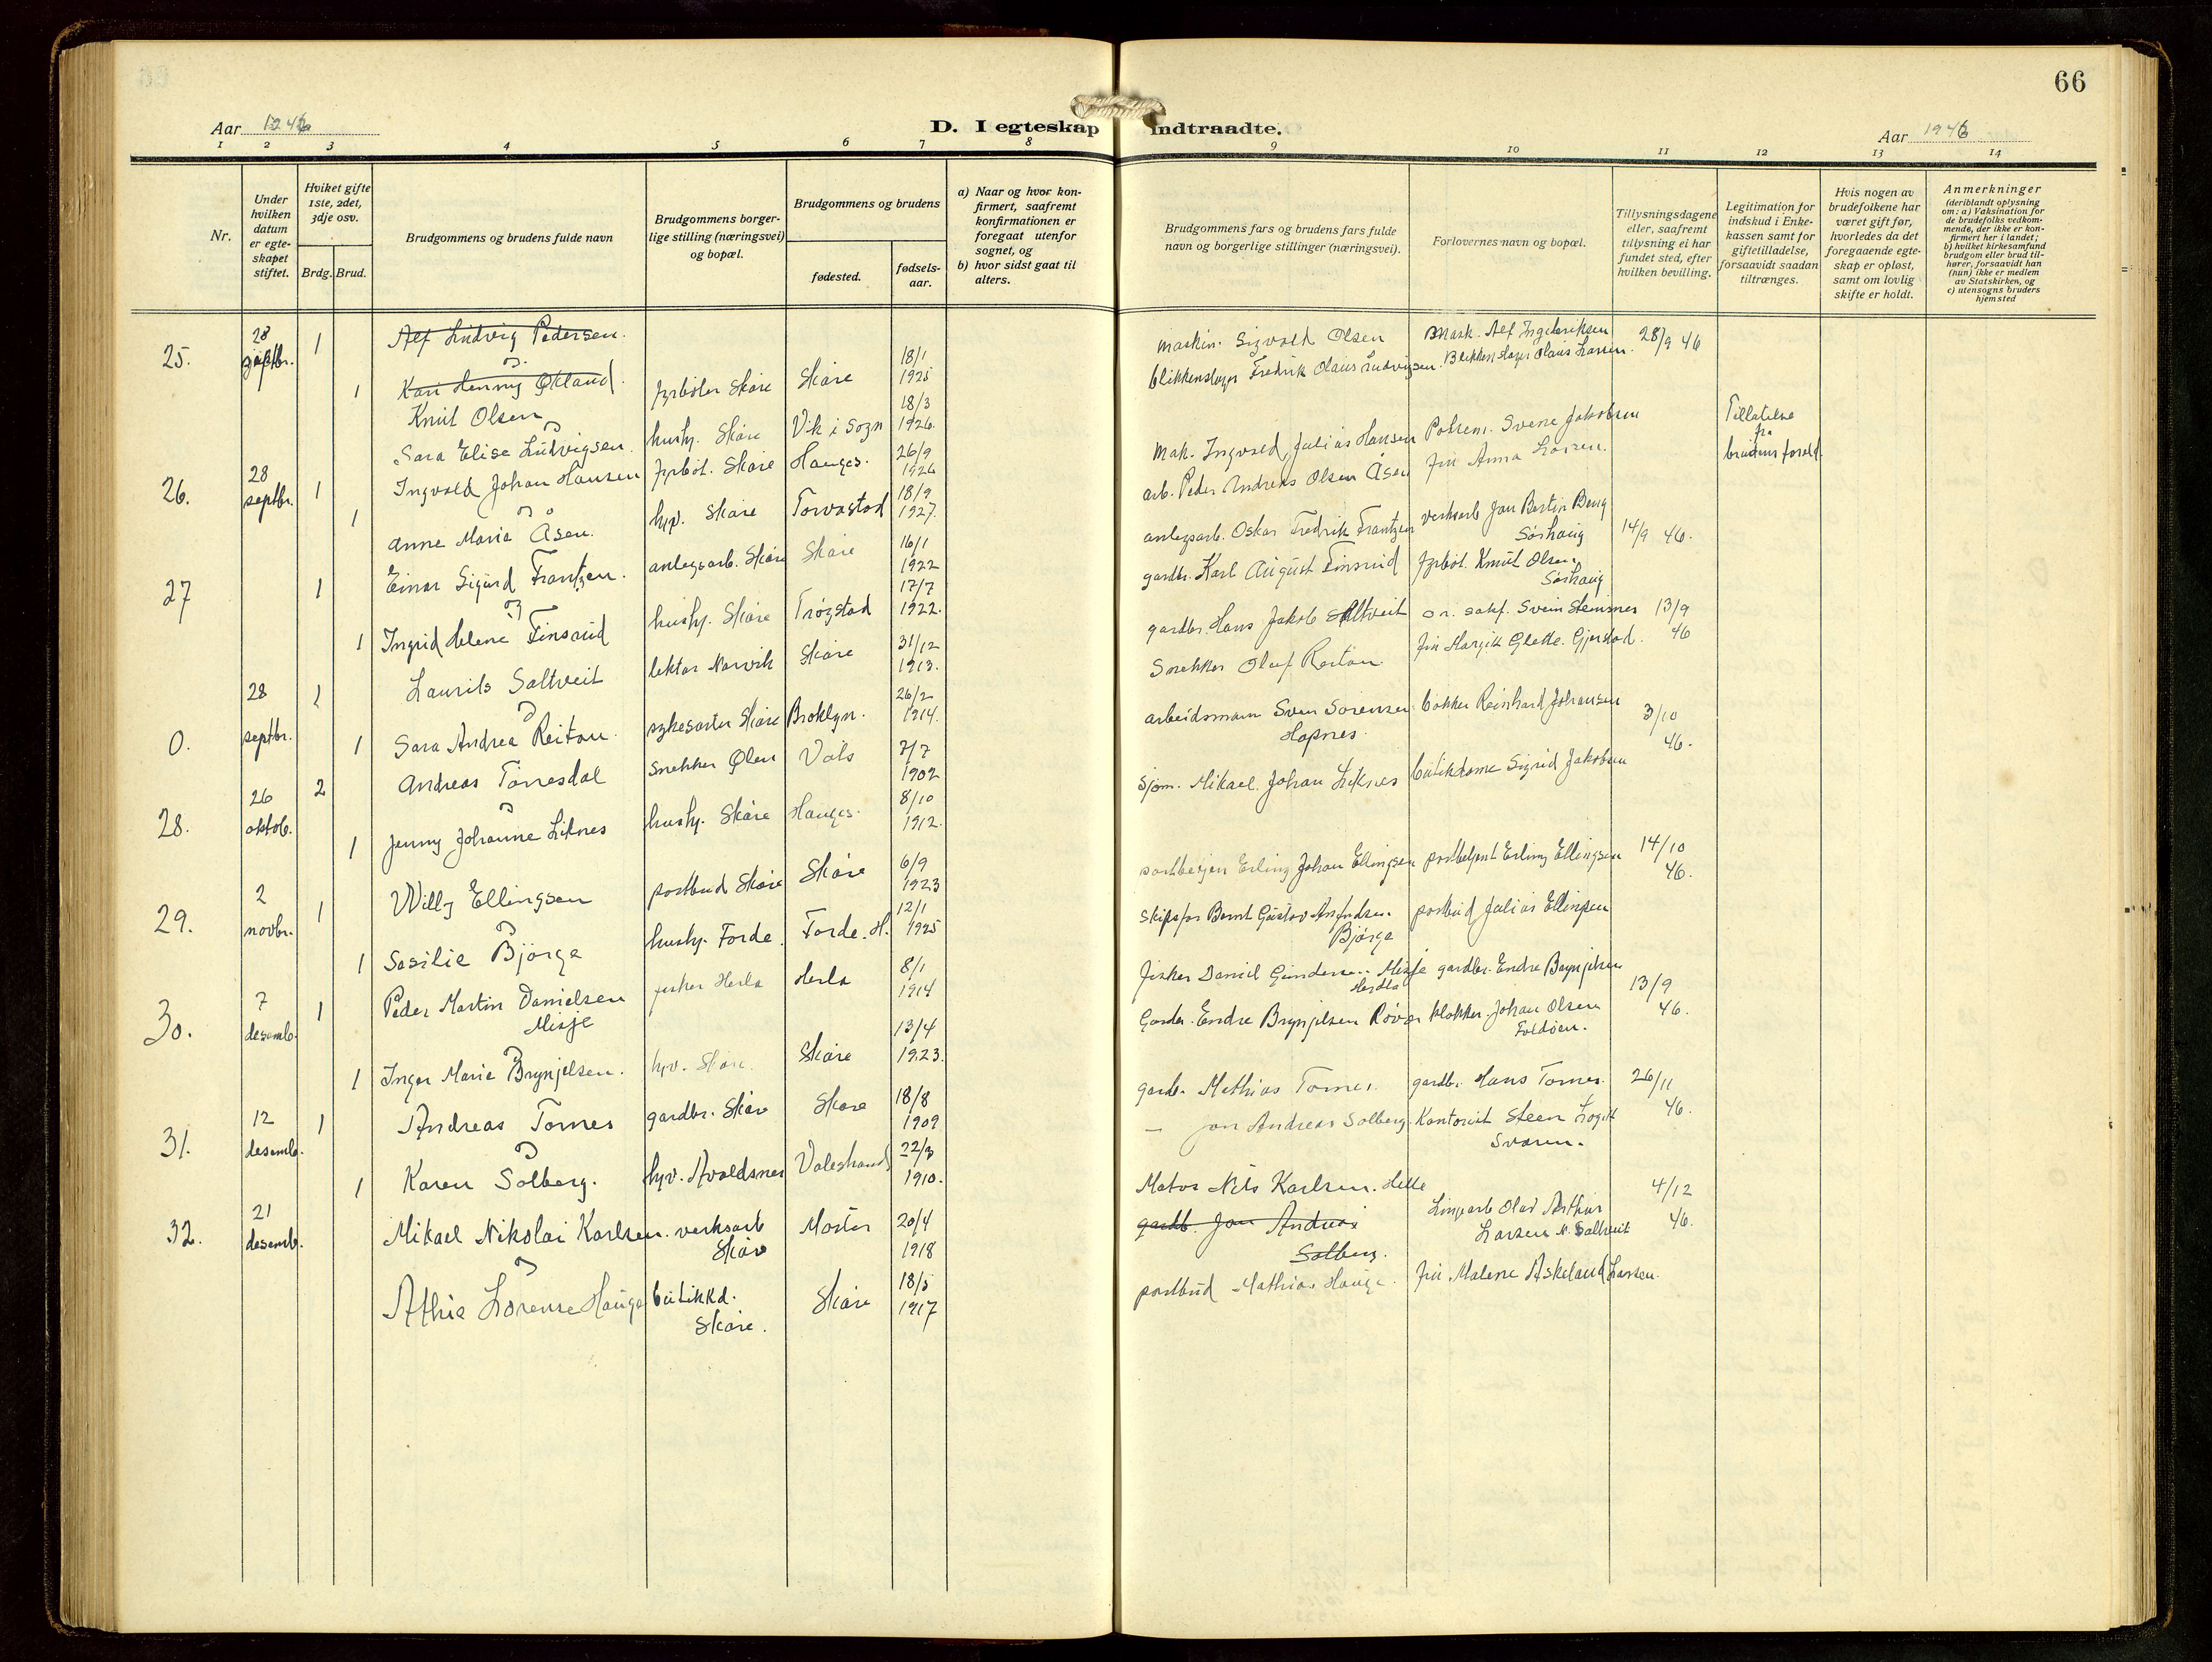 66
Aar 1946
D. I egteskap indtraadte.
Aar 1946
1 2 3 4 5 6 7 8 9 10 11 12 13 14
Nr.
Under hvilken datum er egteskapet stiftet.
Hvilket gifte 1ste, 2det, 3dje osv.
Brdg. Brud.
Brudgommens og brudens fulde navn
Brudgommens borgerlige stilling (næringsvei) og bopæl.
Brudgommens og brudens
fødested.
fødselsaar.
a) Naar og hvor konfirmert, saafremt konfirmationen er foregaat utenfor sognet, og
b) hvor sidst gaat til alters.
Brudgommens fars og brudens fars fulde navn og borgerlige stillinger (næringsvei).
Forlovernes navn og bopæl.
Tillysningsdagene eller, saafremt tillysning ei har fundet sted, efter hvilken bevilling.
Legitimation for indskud i Enkekassen samt for giftetilladelse, forsaavidt saadan tiltrænges.
Hvis nogen av brudefolkene har været gift før, hvorledes da det foregaaende egteskap er opløst, samt om lovlig skifte er holdt.
Anmerkninger (deriblandt oplysning om: a) Vaksination for de brudefolks vedkommende, der ikke er konfirmert her i landet; b) hvilket kirkesamfund brudgom eller brud tilhører, forsaavidt han (hun) ikke er medlem av Statskirken, og c) utensogns bruders hjemsted
25. 28 septbr. 1 Alf Ludvig Pedersen.
og
1 Kari Henny Økland.
Knut Olsen fyrbøter Skåre Skåre 18/1 1925 maskin. Sigvald Olsen Mask. Alf Ingebriksen 28/9 46
og
Sara Elise Ludvigsen. hushj. Skåre Vik i Sogn 18/3 1926. blikkenslager Fredrik Olaus Ludvigsen. Blikkenslager Olaus Larsen.
26. 28 septbr. 1 Ingvald Johan Hansen fyrbøt. Skåre Hauges. 26/9 1926 Mak. Ingvald Julius Hansen Svene Jakobsen Tillatelse fra brudens foreld.
og
1 Anne Marie Åsen. hjv. Skåre Torvastad 18/9 1927. arb. Peder Andreas Olsen Åsen frú Anna Larsen.
27 1 Einar Sigurd Frantzen. anlegsarb. Skåre Skåre 16/1 1922 anlegsarb. Oskar Fredrik Frantzen verksarb Jan Bertin Berg Sørhaug 14/9 46.
og
1 Ingrid Helene Finsrud hushj. Skåre Trøgstad 17/7 1922. gardbr. Karl August Finsrud fyrbøt. Knut Olsen Sørhaug
0. 28 septbr. 1 Laurits Saltveit lektor Narvik Skåre 31/12 1913. gardbr. Hans Jakob Saltveit o.r. sakf. Svein Stemnes 13/9 46
og
1 Sara Andrea Reitan. sykesøster Skåre Broklyn. 26/2 1914. Snekker Oluf Reitan. frú Margit Glette. Gjerstad.
28. 26 oktob. 2 Andreas Tørresdal Snekker Ølen Vats 7/7 1902 arbeidsmann Sven Sørensen Hapnes. bøkker Reinhard Johansen 3/10 46.
og
1 Jenny Johanne Liknes hushj. Skåre Hauges. 8/10 1912. Sjøm. Mikael Johan Liknes bútikdame Sigrid Jakobsen
29. 2 novbr. 1 Willy Ellingsen postbud Skåre Skåre 6/9 1923 postbetjen Erling Johan Ellingsen postbetjent Erling Ellingsen 14/10 46.
og
1 Sasilie Bjørge hushj. Førde. Førde. H. 12/1 1925 Skipsfør Bernt Gústav Bjørge postbúd Julius Ellingsen
30. 7 desemb. 1 Peder Martin Danielsen Misje fisker Herla Herla 8/1 1914 fisker Daniel Gundersen Misje Herdla gardbr. Endre Brynjelsen 13/9 46.
og
1 Inger Marie Brynjelsen. hjv. Skåre. Skåre 13/4 1923. Gardbr. Endre Brynjelsen Røvær klokker Johan Olsen
31. 12 desemb. 1 Andreas Tornes gardbr. Skåre Skåre 18/8 1909 gardb. Mathias Tornes. gardbr. Hans Tornes. 26/11 46.
og
1 Karen Solberg. hjv. Avaldsnes Valestrand 22/3 1910. — Jon Andreas Solberg. Kontorist Steen Logit
32. 21 desemb. Mikael Nikolai Karlsen. verksarb Skåre Moster 20/4 1918 Mator Nils Karlsen. Hette Olav Arthur Larsen N. Saltveit 4/12 46.
og
gardb. Jon Andreas Solberg.
Athie Lorense Hauge bútikkd. Skåre. Skåre 18/5 1917 postbúd Mathias Hauge frú Malene Askeland Larsen.